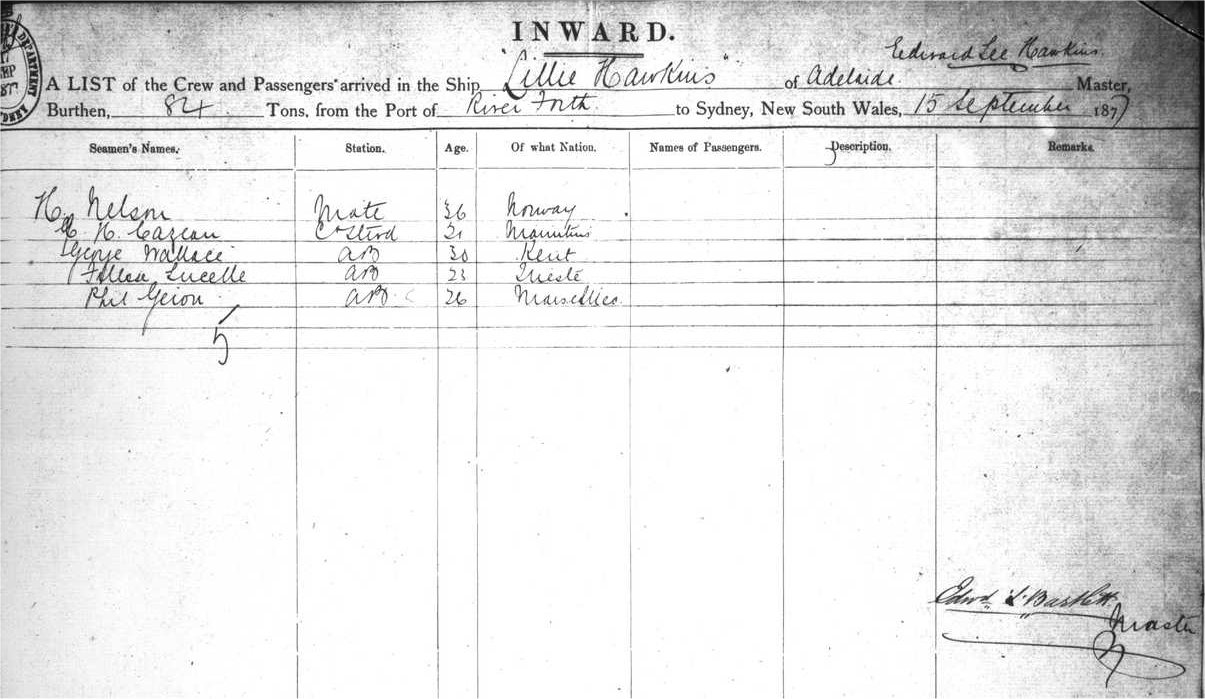 INWARD.
Edward Lee Hawkins.
A LIST of the Crew and Passengers arrived in the Ship "Lillie Hawkins" of Adelaide Master,
Burthen, 84 Tons, from the Port of River Forth to Sydney, New South Wales, 15 September 1877
Seamen's Names. Station. Age. Of what Nation. Names of Passengers. Description. Remarks.
H. Nelson Mate 36 Norway
H. Mauritius
George Wallace AB 30 Kent
Lucelle AB 23 Trieste
Phil AB 26 Marseilles
5
Edwd L. Bartlett
Master